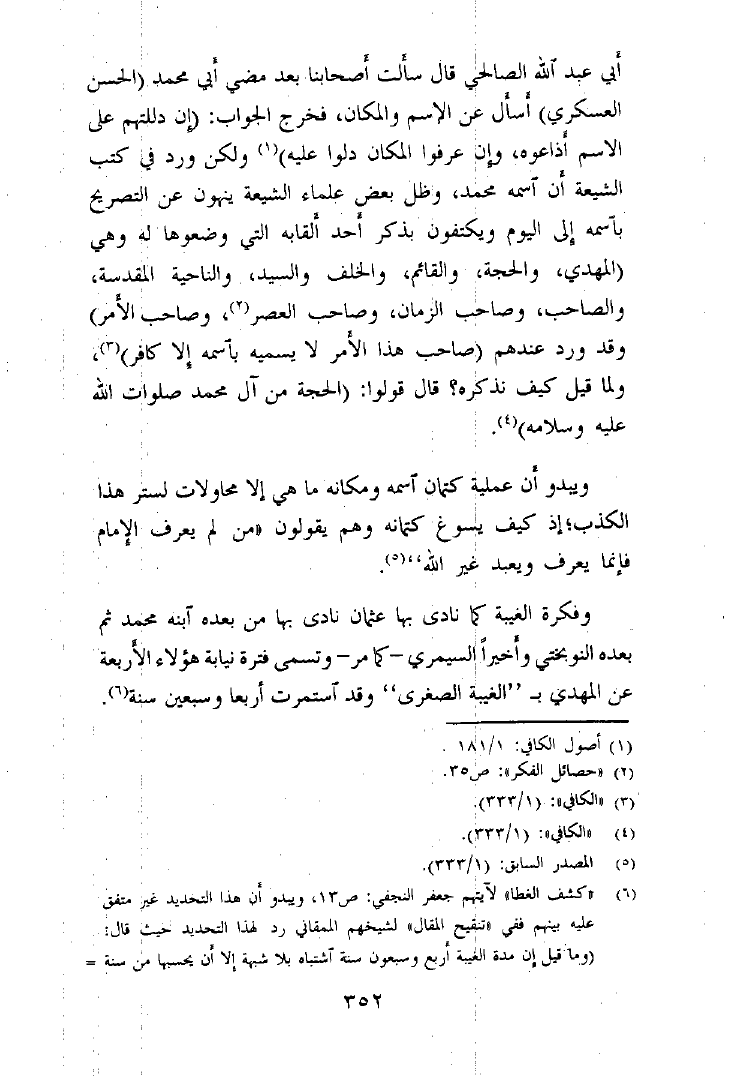 أبي عبد ٱلله الصالحي قال سألت أصحابنا بعد مضي أبي محمد (الحسن
العسكري) أسأل عن الإسم والمكان، فخرج الجواب: (إن دللتهم على
الاسم أذاعوه، وإن عرفوا المكان دلوا عليه)(١) ولكن ورد في كتب
الشيعة أن ٱسمه محمد، وظل بعض علماء الشيعة ينهون عن التصريح
بٱسمه إلى اليوم ويكتفون بذكر أحد ألقابه التي وضعوها له وهي
(المهدي، والحجة، والقائم، والخلف والسيد، والناحية المقدسة،
والصاحب، وصاحب الزمان، وصاحب العصر(٢)، وصاحب الأمر)
وقد ورد عندهم (صاحب هذا الأمر لا يسميه بٱسمه إلا كافر)(٣)،
ولما قيل كيف نذكره؟ قال قولوا: (الحجة من آل محمد صلوات الله
عليه وسلامه)(٤).
ويبدو أن عملية كتمان ٱسمه ومكانه ما هي إلا محاولات لستر هذا
الكذب؛ إذ كيف يسوغ كتمانه وهم يقولون «من لم يعرف الإمام
فإنما يعرف ويعبد غير الله‘‘(٥).
وفكرة الغيبة كما نادى بها عثمان نادى بها من بعده ٱبنه محمد ثم
بعده النوبختي وأخيراً السيمري -كما مر- وتسمى فترة نيابة هؤلاء الأربعة
عن المهدي بـ ’’الغيبة الصغرى‘‘ وقد ٱستمرت أربعا وسبعين سنة(٦).
(١) أصول الكافي: ١٨١/١ .
(٢) «حصائل الفكر»: ص٣٥.
(٣) «الكافي»: (٣٣٣/١).
(٤) «الكافي»: (٣٣٣/١).
(٥) المصدر السابق: (٣٣٣/١).
(٦) «كشف الغطا» لآيتهم جعفر النجفي: ص١٣، ويبدو أن هذا التحديد غير متفق
عليه بينهم ففي «تنقيح المقال» لشيخهم الممقاني رد لهذا التحديد حيث قال:
(وما قيل إن مدة الغيبة أربع وسبعون سنة ٱشتباه بلا شبهة إلا أن يحسبها من سنة =
٣٥٢